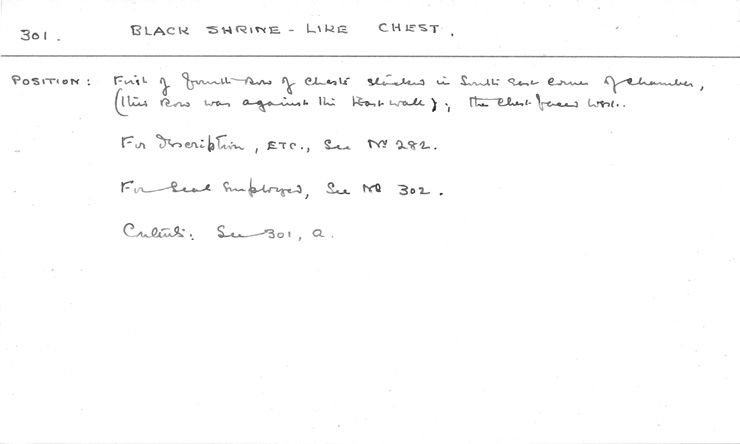 301. BLACK SHRINE-LIKE CHEST.
POSITION: First of fourth row of chests stacked in South East corner of Chamber,
(this row was against the East wall); the chest faced West.
For Description, ETC., See Nº 282.
For Seal Employed, See Nº 302.
Contents: See 301, a.